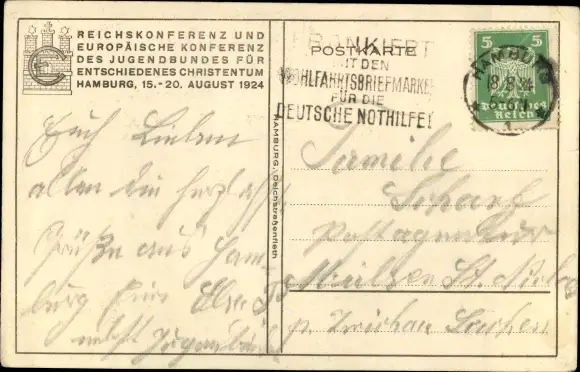 REICHSKONFERENZ UND
EUROPÄISCHE KONFERENZ
DES JUGENDBUNDES FÜR
ENTSCHIEDENES CHRISTENTUM
HAMBURG, 15.-20. AUGUST 1924
POSTKARTE
FRANKIERT
MIT DEN
WOHLFAHRTSBRIEFMARKEN
FÜR DIE
DEUTSCHE NOTHILFE!
5 5
HAMBURG
Deutsches
Reich
1
HAMBURG, Deichstraßenfleth
Euch Lieben
allen die herzlichst
Grüße aus Ham-
burg Eure Else
nebst
Familie
Scharf
Postagentur
Mülsen St. Niclas
p. Zwickau Sachsen